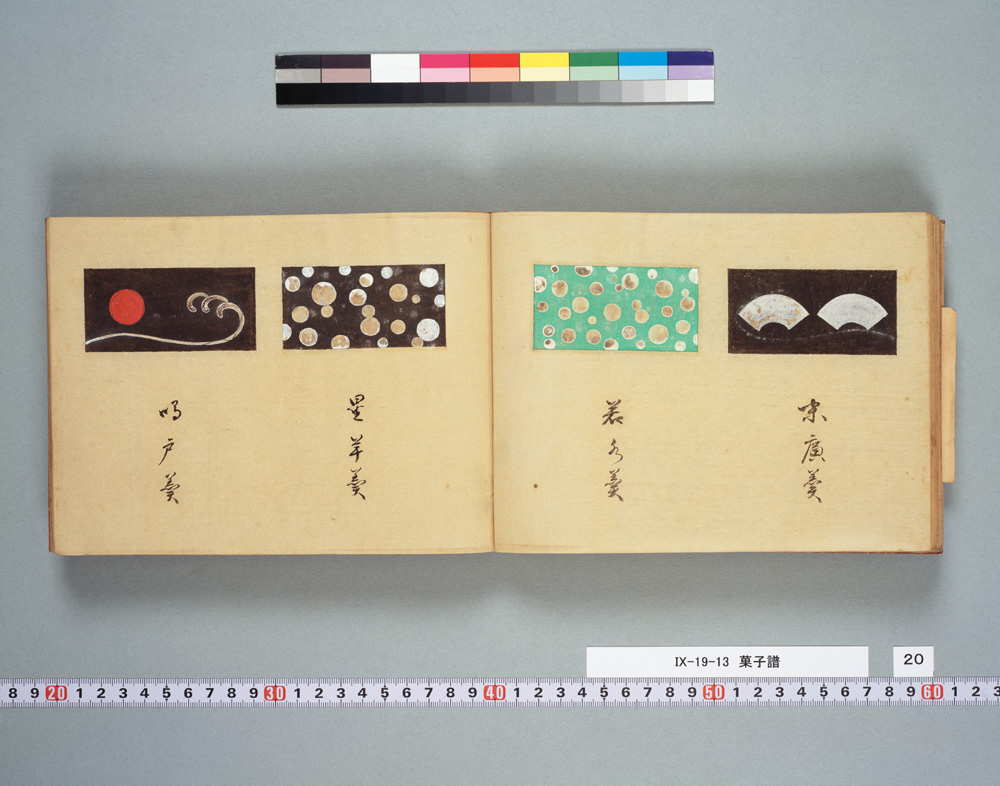 末廣羹
若水羹
星羊羹
鳴戸羹
IX-19-13 菓子譜
20
8 9 20 1 2 3 4 5 6 7 8 9 30 1 2 3 4 5 6 7 8 9 40 1 2 3 4 5 6 7 8 9 50 1 2 3 4 5 6 7 8 9 60 1 2 3